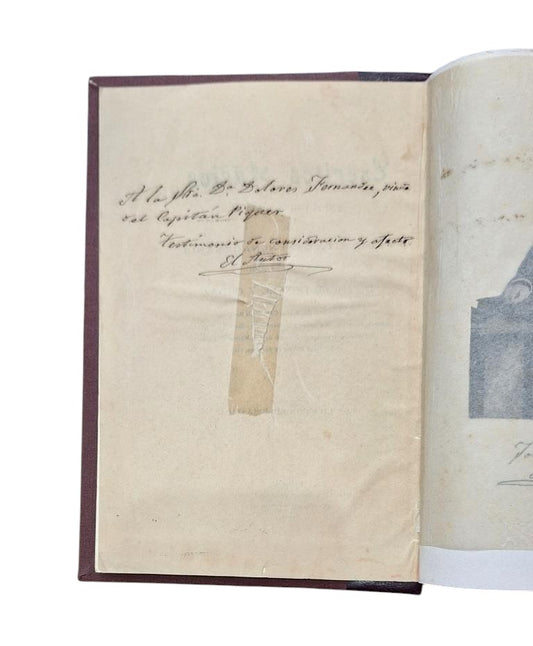 A la Sra. Da. Dolores Fernandez, viuda
del Capitán Piquer
Testimonio de consideracion y afecto
El Autor